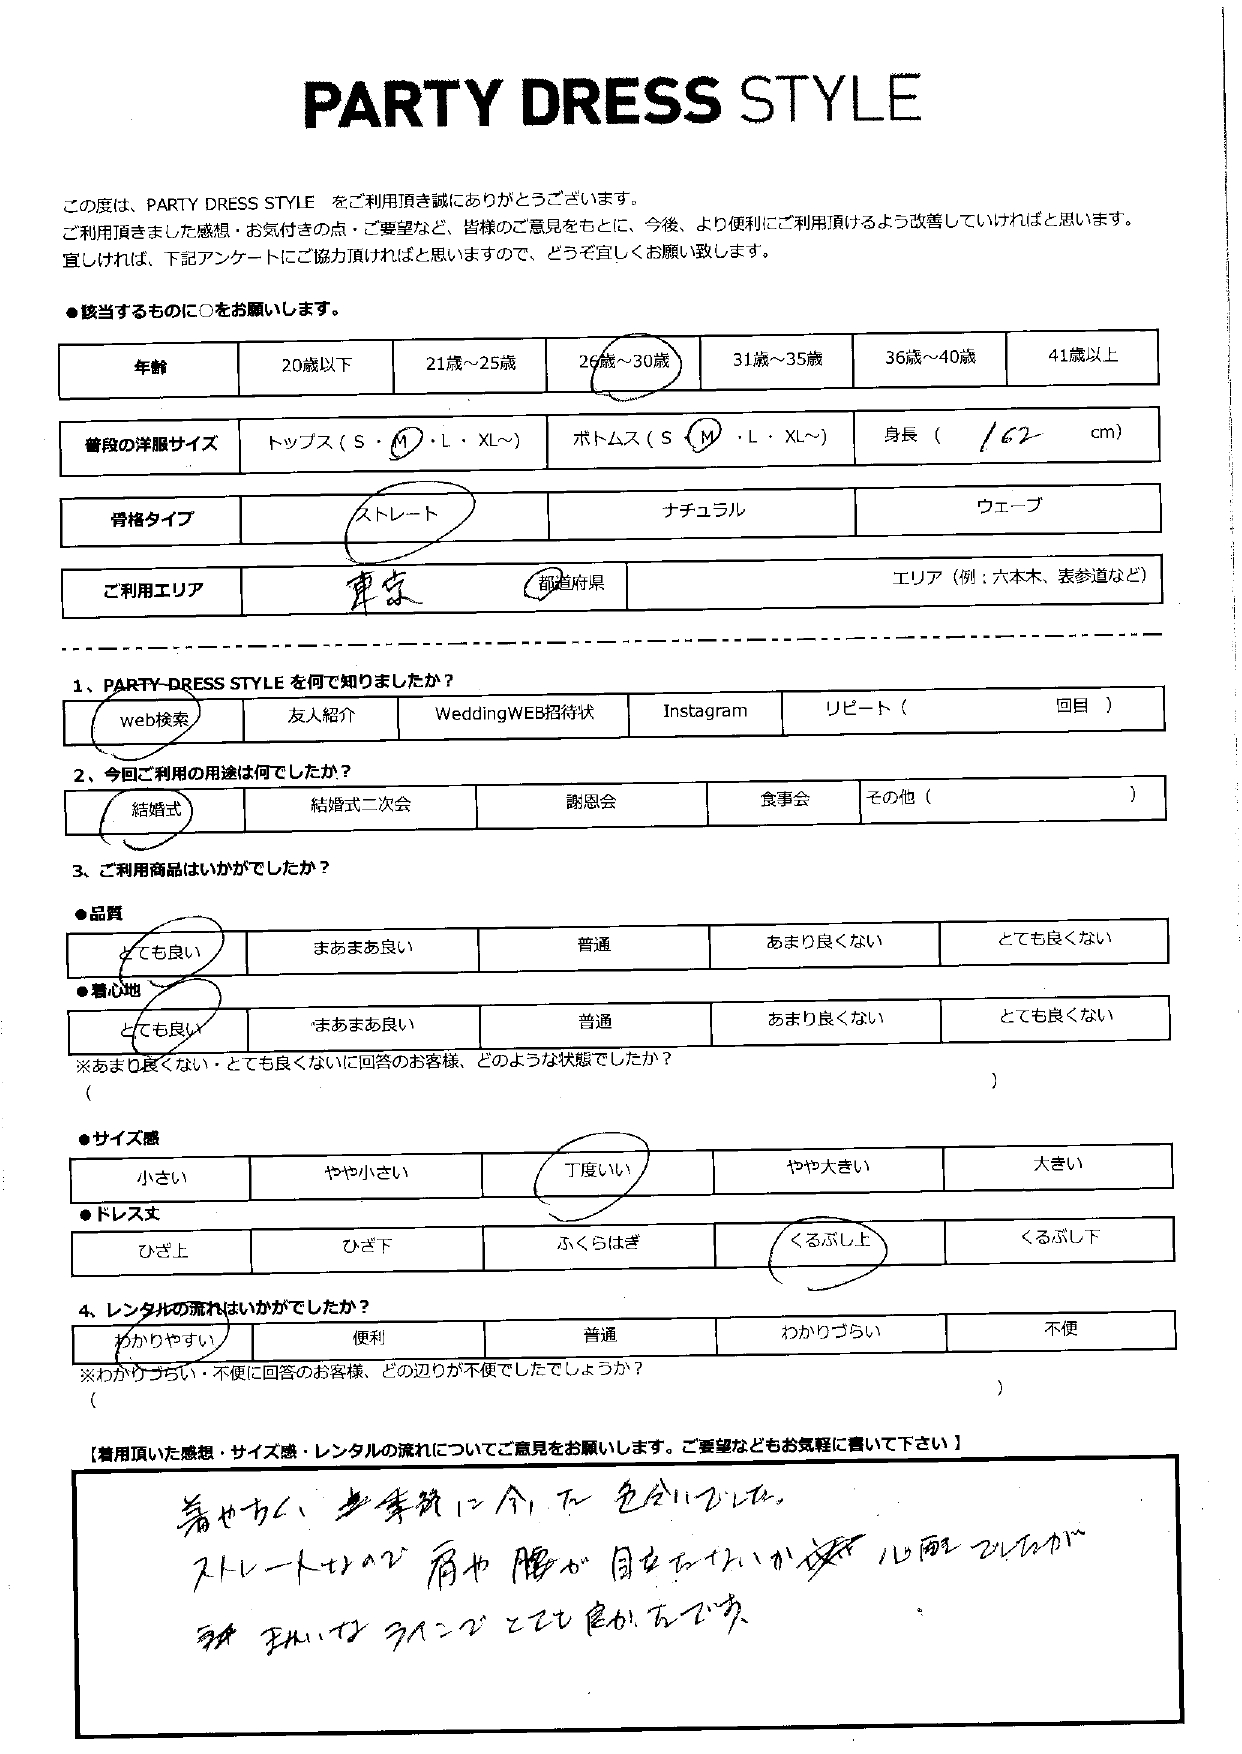 PARTY DRESS STYLE
この度は、PARTY DRESS STYLE をご利用頂き誠にありがとうございます。
ご利用頂きました感想・お気付きの点・ご要望など、皆様のご意見をもとに、今後、より便利にご利用頂けるよう改善していければと思います。
宜しければ、下記アンケートにご協力頂ければと思いますので、どうぞ宜しくお願い致します。
●該当するものに○をお願いします。
年齢 20歳以下 21歳～25歳 26歳～30歳 31歳～35歳 36歳～40歳 41歳以上
普段の洋服サイズ トップス ( S ・ M ・ L ・ XL～) ボトムス ( S ・ M ・ L ・ XL～) 身長 ( 162 cm)
骨格タイプ ストレート ナチュラル ウェーブ
ご利用エリア 東京 都道府県 エリア (例：六本木、表参道など)
1、PARTY DRESS STYLE を何で知りましたか？
web検索 友人紹介 WeddingWEB招待状 Instagram リピート ( 回目 )
2、今回ご利用の用途は何でしたか？
結婚式 結婚式二次会 謝恩会 食事会 その他 ( )
3、ご利用商品はいかがでしたか？
●品質
とても良い まあまあ良い 普通 あまり良くない とても良くない
●着心地
とても良い まあまあ良い 普通 あまり良くない とても良くない
※あまり良くない・とても良くないに回答のお客様、どのような状態でしたか？
( )
●サイズ感
小さい やや小さい 丁度いい やや大きい 大きい
●ドレス丈
ひざ上 ひざ下 ふくらはぎ くるぶし上 くるぶし下
4、レンタルの流れはいかがでしたか？
わかりやすい 便利 普通 わかりづらい 不便
※わかりづらい・不便に回答のお客様、どの辺りが不便でしたでしょうか？
( )
【着用頂いた感想・サイズ感・レンタルの流れについてご意見をお願いします。ご要望などもお気軽に書いて下さい 】
着やすく、季節に合った色合いでした。
ストレートなので 肩や腰が目立たないか 心配でしたが
きれいなラインでとても良かったです。